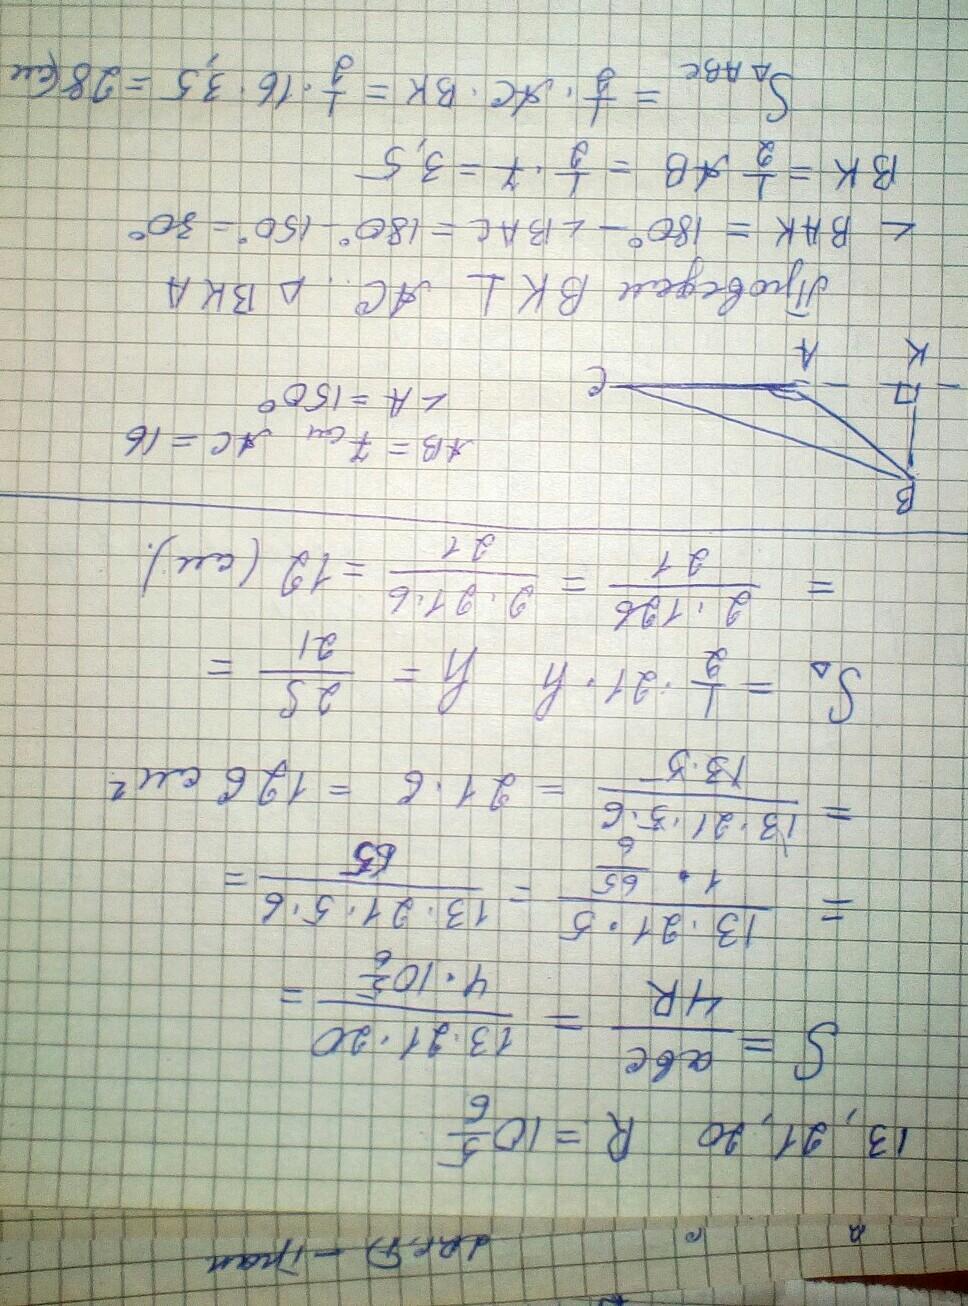 13, 21, 20 R = 10 5/6
S = abc/4R = 13·21·20/4·10 5/6 =
= 13·21·5/1·65/6 = 13·21·5·6/65 =
= 13·21·5·6/13·5 = 21·6 = 126 см²
S△ = 1/2·21·h h = 2S/21 =
= 2·126/21 = 2·21·6/21 = 12 (см).
B
AB = 7 см AC = 16
∠A = 150°
K A C
Проведем BK ⊥ AC. △ BKA
∠ BAK = 180° - ∠BAC = 180° - 150° = 30°
BK = 1/2 AB = 1/2·7 = 3,5
S△ABC = 1/2·AC·BK = 1/2·16·3,5 = 28 (см